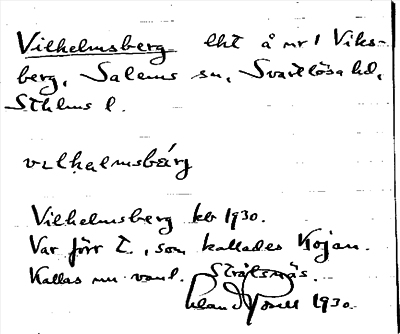 Vilhelmsberg lht å nr 1 Viks-
berg, Salems sn, Svartlösa hd,
Sthlms l.
vɩlhalmsbárj
Vilhelmsberg kb 1930.
Var förr t., som kallades Kojan.
Kallas nu vanl. Strålsnäs.
1930.